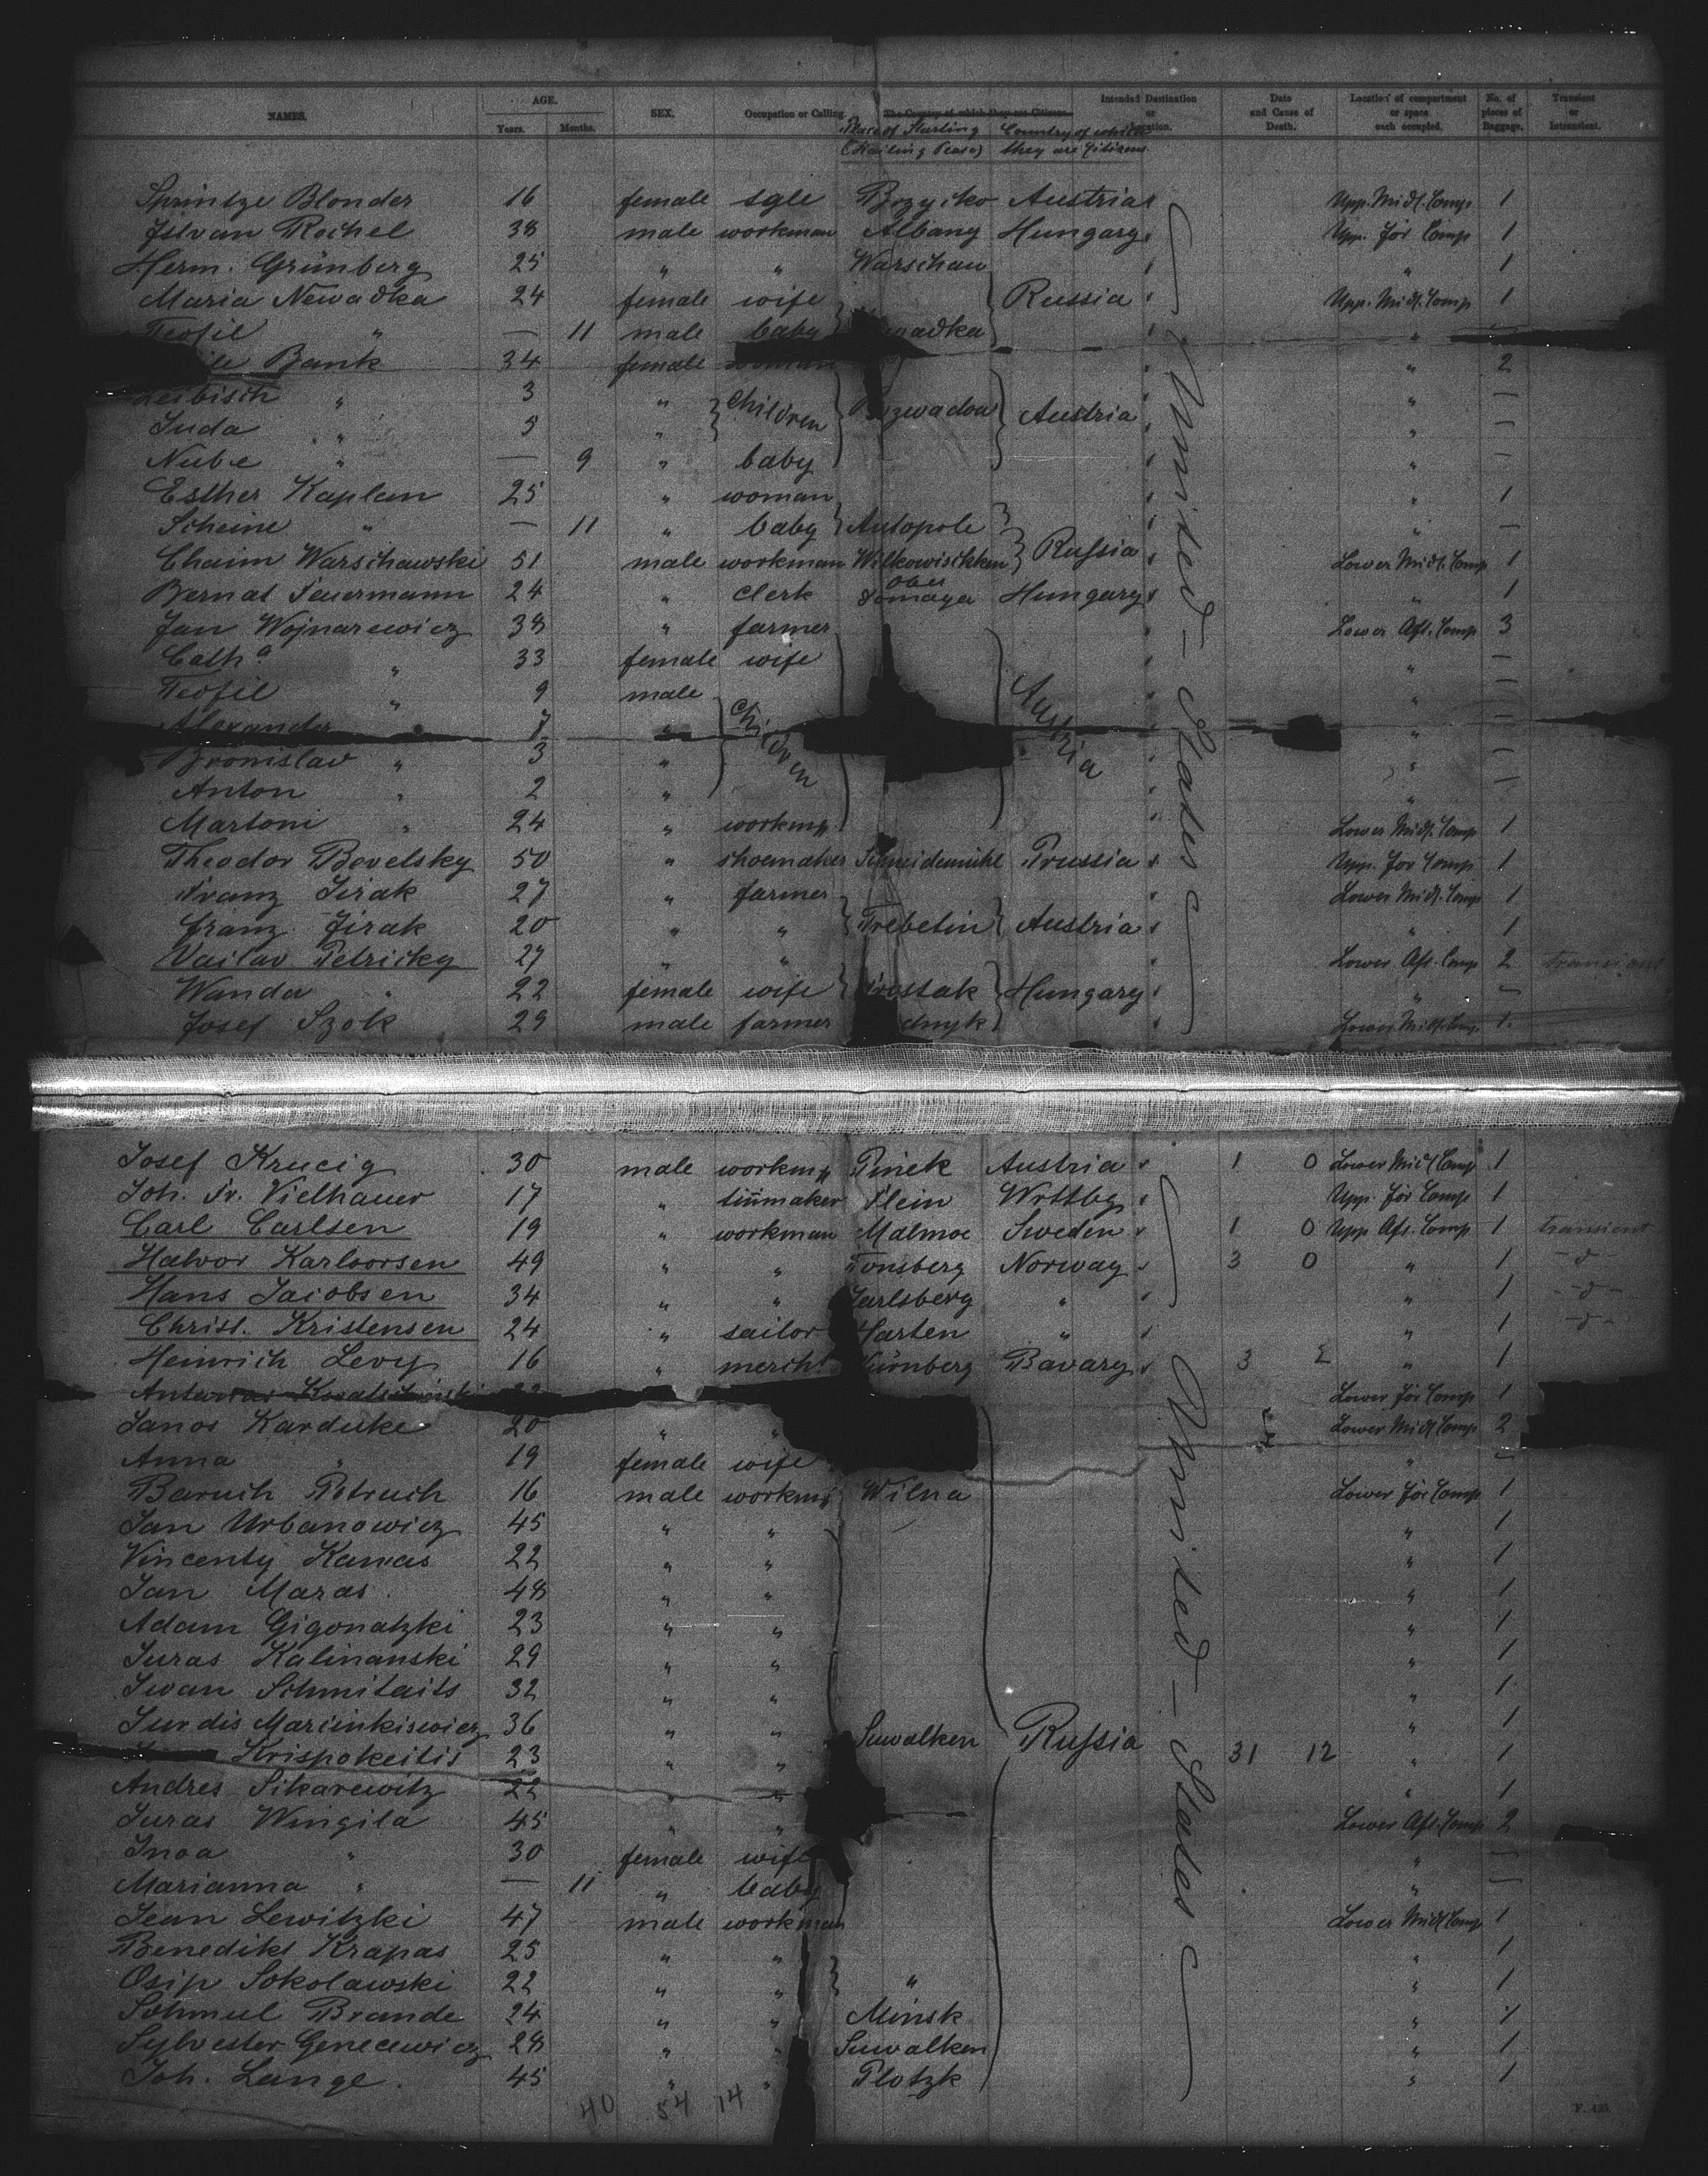 NAMES. AGE. Years. Months. SEX. Occupation or Calling. The Country of which they are Citizens. Intended Destination or Location. Date and Cause of Death. Location of compartment or space each occupied. No. of pieces of Baggage. Transient or Intransient.
Place of Starting Country of which
they are Citizens
Sprintze Blonder 16 female sgle Austria Upp. Midl. Comp 1
Istvan Rochel 38 male workman Albany Hungary Upp. for Comp 1
Herm. Grünberg 25 " " Warschau " 1
Maria Newadka 24 female wife Russia Upp. Midl. Comp 1
Teofil " — 11 male baby "
Bank 34 female woman " 2
Leibisch " 3 " children Austria " —
Juda " 5 " " —
Nube " — 9 " baby " —
Esther Kaplan 25 " woman " 1
Scheine " — 11 " baby Antopole Russia " —
Chaim Warschawski 51 male workman Wilkowischken Lower Midl. Comp 1
Bernat Feuermann 24 " clerk Ober Hungary " 1
Jan Wojnarewicz 38 " farmer Lower Aft. Comp 3
Cath.a " 33 female wife Austria " —
Teofil " 9 male children " —
Alexander 7 " " —
Bronislav " 3 " " —
Anton " 2 " " —
Martoni " 24 " workm Lower Midl. Comp 1
Theodor Bevelsky 50 " shoemaker Schneidemühl Prussia Upp. for Comp 1
Franz Jirak 27 " farmer Lower Midl. Comp 1
Franz Jirak 20 " " Trebetin Austria " 1
Vaclav Petricky 27 " " Lower Aft. Comp 2 transient
Wanda " 22 female wife Hungary " —
Josef Szok 29 male farmer Lower Midl. Comp 1
United States
Josef Krucig 30 male workm Pinek Austria 1 0 Lower Midl Comp 1
Joh. Fr. Vielhauer 17 " tinmaker Flein Wrttbg Upp. for Comp 1
Carl Carlsen 19 " workman Malmoe Sweden 1 0 Upp Aft. Comp 1 transient
Halvor Karlvorsen 49 " " Tonsberg Norway 3 0 " 1 -d-
Hans Jacobsen 34 " " Jarlsberg " " 1 -d-
Christ. Kristensen 24 " sailor Harten " " 1 -d-
Heinrich Levy 16 " mercht. Nürnberg Bavary 3 " 1
Lower for Comp 1
Janos Karduke 20 " " Lower Midl Comp 2
Anna " 19 female wife " —
Baruch Petruch 16 male workm Wilna Lower for Comp 1
Jan Urbanowicz 45 " " " 1
Vincenty Kamas 22 " " " 1
Jan Maras 48 " " " 1
Adam Gigonatzki 23 " " " 1
Juras Kalinanski 29 " " " 1
Iwan Schmitaits 32 " " " 1
Jurdis Marcinkiewicz 36 " " Suwalken Russia " 1
Krispokeitis 23 " " 31 12 " 1
Andres Sikarewitz 22 " " " 1
Juras Wingila 45 " " Lower Aft. Comp 2
Inoa " 30 female wife " —
Marianna " — 11 " baby " —
Jean Lewitzki 47 male workman Lower Midl Comp 1
Benedikt Krapas 25 " " " 1
Osip Sokolawski 22 " " " " 1
Schmul Brande 24 " " Minsk " 1
Sylvester Genecewicz 28 " " Suwalken " 1
Joh. Lange 45 " " Plotzk " 1
United States
40 54 14
F. 425.